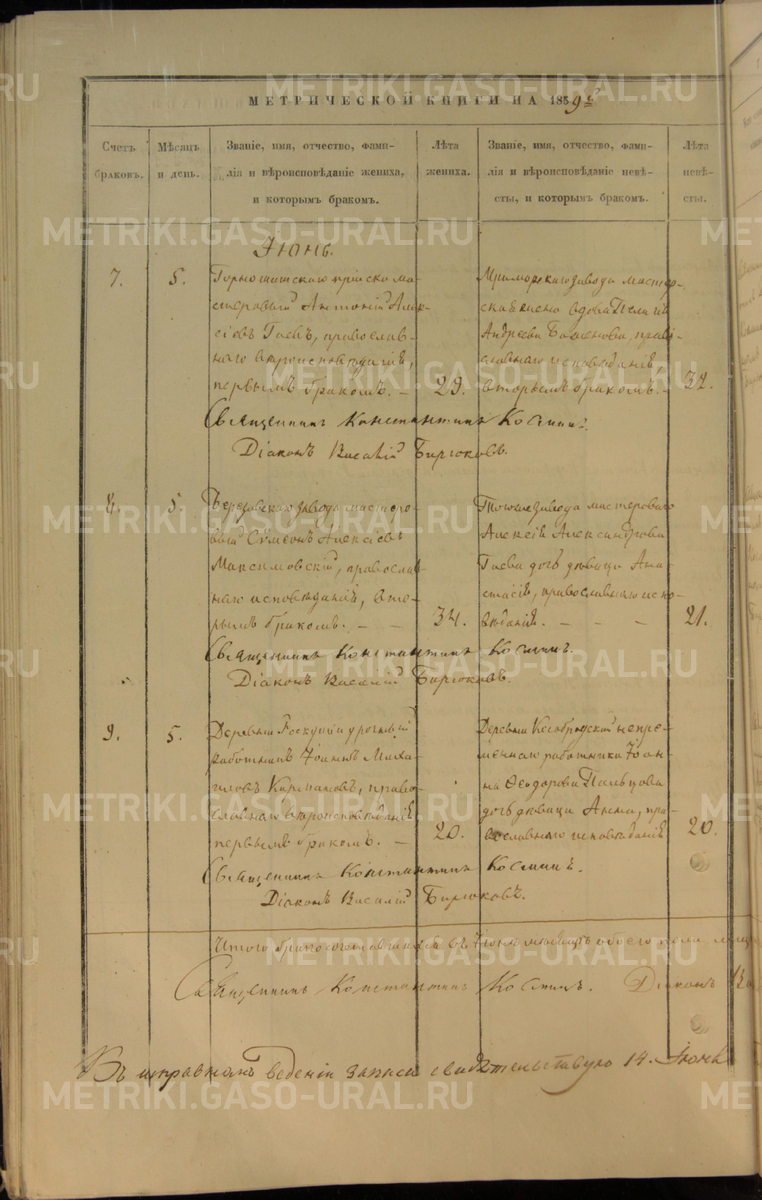 МЕТРИЧЕСКОЙ КНИГИ НА 1859 г.
Счетъ браковъ.
Мѣсяцъ и день.
Званіе, имя, отчество, фами-
лія и вѣроисповѣданіе жениха,
и которымъ бракомъ.
Лѣта жениха.
Званіе, имя, отчество, фами-
лія и вѣроисповѣданіе невѣ-
сты, и которымъ бракомъ.
Лѣта невѣ-
сты.
Іюнь.
7.
5.
Горнощитскаго ма-
стеровый Антоній Алек-
сѣевъ Гаевъ, православ-
наго вѣроисповѣданія,
первымъ бракомъ.
29.
завода мастер-
вдова
Андреева Баженова, право-
славнаго исповѣданія
вторымъ бракомъ.
32.
Священникъ Константинъ
Діаконъ Василій Бирюковъ.
8.
5.
Березовскаго завода мастеро-
вый Сѵмеонъ Алексѣевъ
Максимовскій, православ-
наго исповѣданія, вто-
рымъ бракомъ.
34.
завода мастероваго
Алексѣя Александрова
Гаева дочь дѣвица Ана-
стасія, православнаго испо-
вѣданія.
21.
Священникъ Константинъ
Діаконъ Василій Бирюковъ.
9.
5.
Деревни урочный
работникъ Іоаннъ Миха-
иловъ право-
славнаго вѣроисповѣданія
первымъ бракомъ.
20.
Деревни непре-
мѣннаго работника Іоан-
на Ѳеодорова Пальцова
дочь дѣвица Анна, пра-
вославнаго исповѣданія
20.
Священникъ Константинъ
Діаконъ Василій Бирюковъ.
Итого въ Іюнѣ мѣсяцѣ обоего пола
Священникъ Константинъ Діаконъ
Въ исправномъ веденіи записи свидѣтельствую 14. Іюня
METRIKI.GASO-URAL.RU